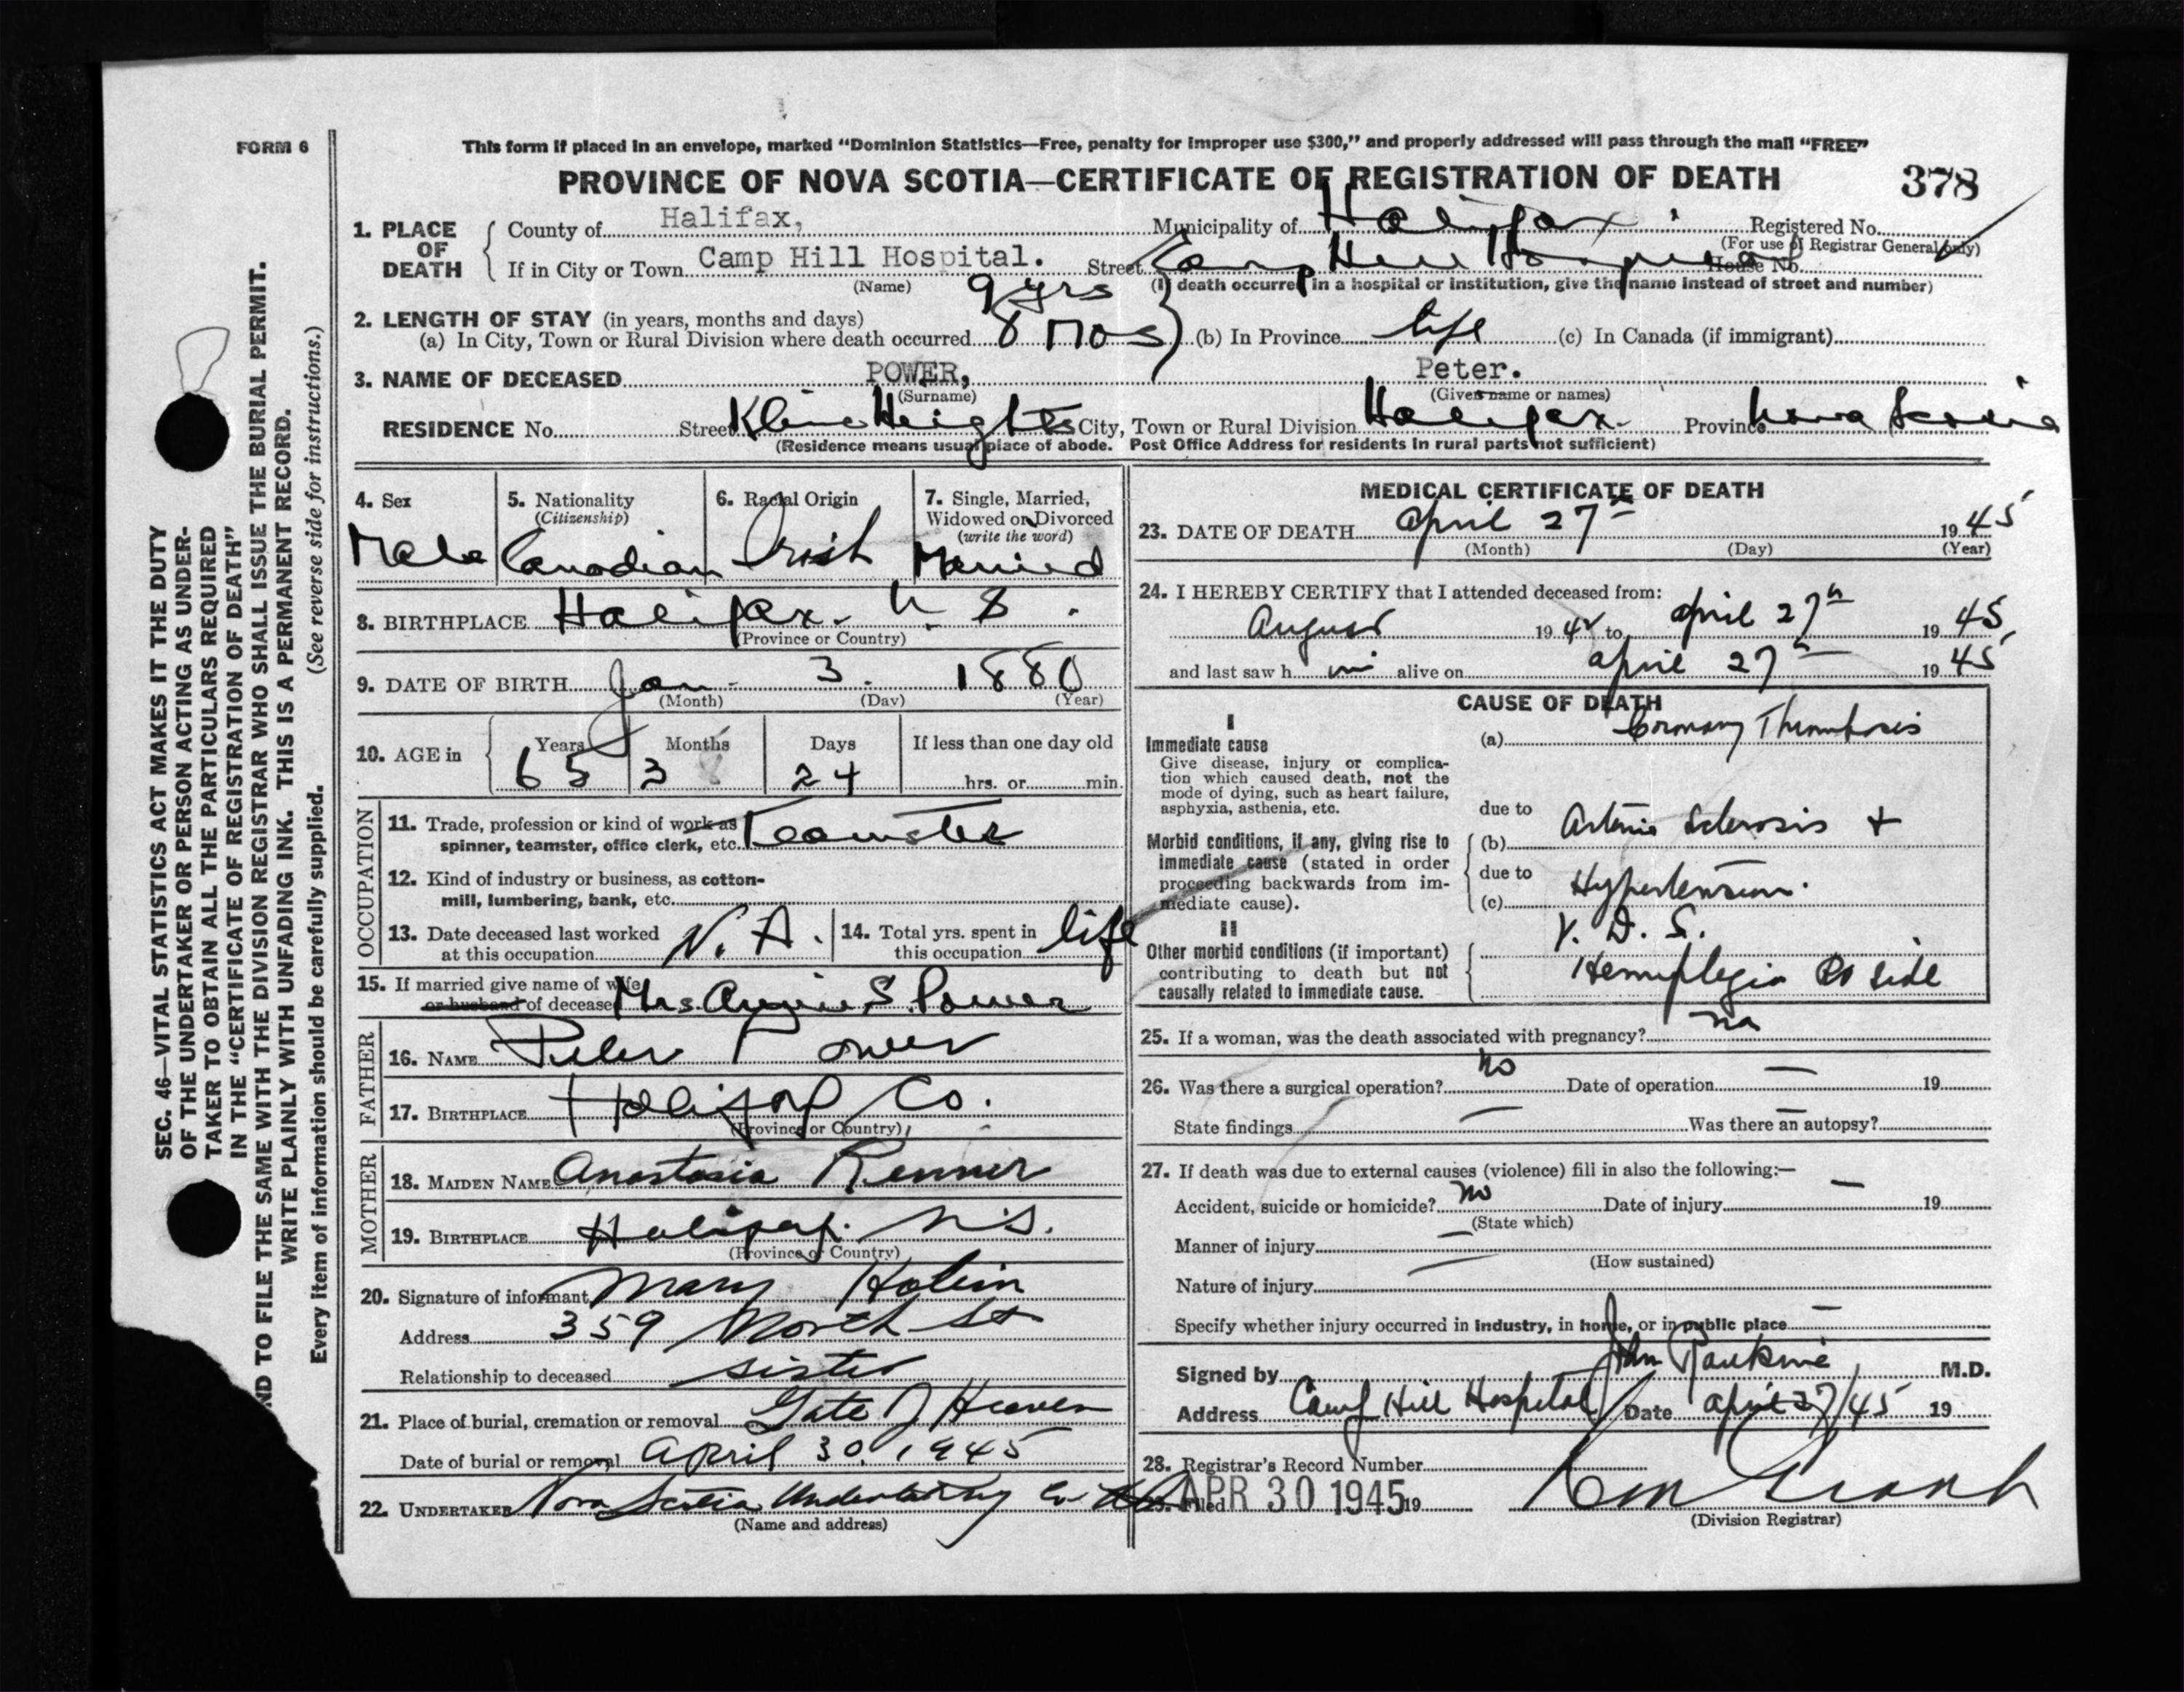 FORM 6
This form if placed in an envelope, marked "Dominion Statistics—Free, penalty for improper use $300," and properly addressed will pass through the mail "FREE"
PROVINCE OF NOVA SCOTIA—CERTIFICATE OF REGISTRATION OF DEATH 378
1. PLACE OF DEATH County of Halifax, Municipality of Halifax Registered No.
(For use of Registrar General only)
If in City or Town Camp Hill Hospital. Street Camp Hill Hospital House No.
(Name) (If death occurred in a hospital or institution, give the name instead of street and number)
2. LENGTH OF STAY (in years, months and days) 9 yrs
(a) In City, Town or Rural Division where death occurred 8 mos (b) In Province life (c) In Canada (if immigrant)
3. NAME OF DECEASED POWER, Peter.
(Surname) (Given name or names)
RESIDENCE No. Street Kline Heights City, Town or Rural Division Halifax Province Nova Scotia
(Residence means usual place of abode. Post Office Address for residents in rural parts not sufficient)
4. Sex 5. Nationality 6. Racial Origin 7. Single, Married,
(Citizenship) Widowed or Divorced
(write the word)
Male Canadian Irish Married
8. BIRTHPLACE Halifax N. S.
(Province or Country)
9. DATE OF BIRTH Jan 3 1880
(Month) (Day) (Year)
10. AGE in Years Months Days If less than one day old
65 3 24 hrs. or min.
OCCUPATION
11. Trade, profession or kind of work as
spinner, teamster, office clerk, etc. Teamster
12. Kind of industry or business, as cotton-
mill, lumbering, bank, etc.
13. Date deceased last worked
at this occupation N. A. 14. Total yrs. spent in
this occupation life
15. If married give name of wife
or husband of deceased Mrs S. Power
FATHER
16. NAME Peter Power
17. BIRTHPLACE Halifax Co.
(Province or Country)
MOTHER
18. MAIDEN NAME Anastasia Renner
19. BIRTHPLACE Halifax. N.S.
(Province or Country)
20. Signature of informant Mary
Address 359 North St
Relationship to deceased sister
21. Place of burial, cremation or removal Gate of Heaven
Date of burial or removal April 30, 1945
22. UNDERTAKER Nova Scotia Undertaking Co
(Name and address)
MEDICAL CERTIFICATE OF DEATH
23. DATE OF DEATH April 27th 1945
(Month) (Day) (Year)
24. I HEREBY CERTIFY that I attended deceased from:
August 19 42 to April 27th 19 45,
and last saw h im alive on April 27th 19 45
CAUSE OF DEATH
I
Immediate cause
Give disease, injury or complica-
tion which caused death, not the
mode of dying, such as heart failure,
asphyxia, asthenia, etc.
(a) Coronary Thrombosis
due to
Morbid conditions, if any, giving rise to
immediate cause (stated in order
proceeding backwards from im-
mediate cause).
(b) Arterio Sclerosis +
due to
(c) Hypertension.
V. D. S.
II
Other morbid conditions (if important)
contributing to death but not
causally related to immediate cause.
Hemiplegia Rt side
25. If a woman, was the death associated with pregnancy? na
26. Was there a surgical operation? no Date of operation — 19
State findings — Was there an autopsy? —
27. If death was due to external causes (violence) fill in also the following:—
Accident, suicide or homicide? no Date of injury — 19
(State which)
Manner of injury —
(How sustained)
Nature of injury —
Specify whether injury occurred in industry, in home, or in public place —
Signed by John Rankine M.D.
Address Camp Hill Hospital Date April 27/45 19
28. Registrar's Record Number
29. Filed APR 30 1945 19
(Division Registrar)
SEC. 46—VITAL STATISTICS ACT MAKES IT THE DUTY
OF THE UNDERTAKER OR PERSON ACTING AS UNDER-
TAKER TO OBTAIN ALL THE PARTICULARS REQUIRED
IN THE "CERTIFICATE OF REGISTRATION OF DEATH"
ND TO FILE THE SAME WITH THE DIVISION REGISTRAR WHO SHALL ISSUE THE BURIAL PERMIT.
WRITE PLAINLY WITH UNFADING INK. THIS IS A PERMANENT RECORD.
Every item of information should be carefully supplied. (See reverse side for instructions.)